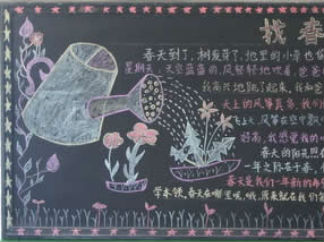 找春
春天到了，树发芽了，地里的小草也
星期天，天空蓝蓝的，风轻轻地吹着，爸爸
我高兴地跳了起来，我和爸
天上的风筝真多，我们
上天，风筝在空中飘
好高，我感觉我的
春天的阳光照在
一年之际在于春，
春天是我们一年新的希
学本领，春天在哪里呢，哦，原来就在我们